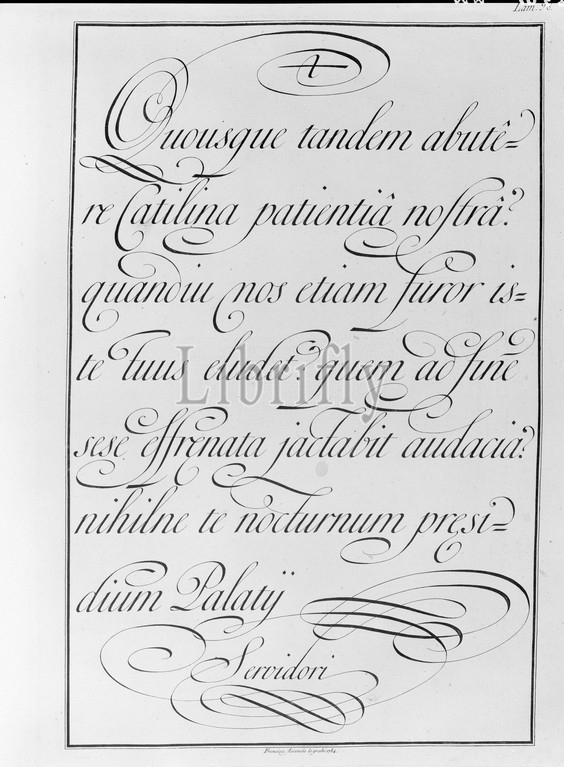 Quousque tandem abutê=
re Catilina patientiâ nostrâ?
quandiu nos etiam furor is=
te tuus eludet? quem ad finē
sese effrenata jactabit audacia?
nihilne te nocturnum presi=
dium Palatij
Servidori
Librifly